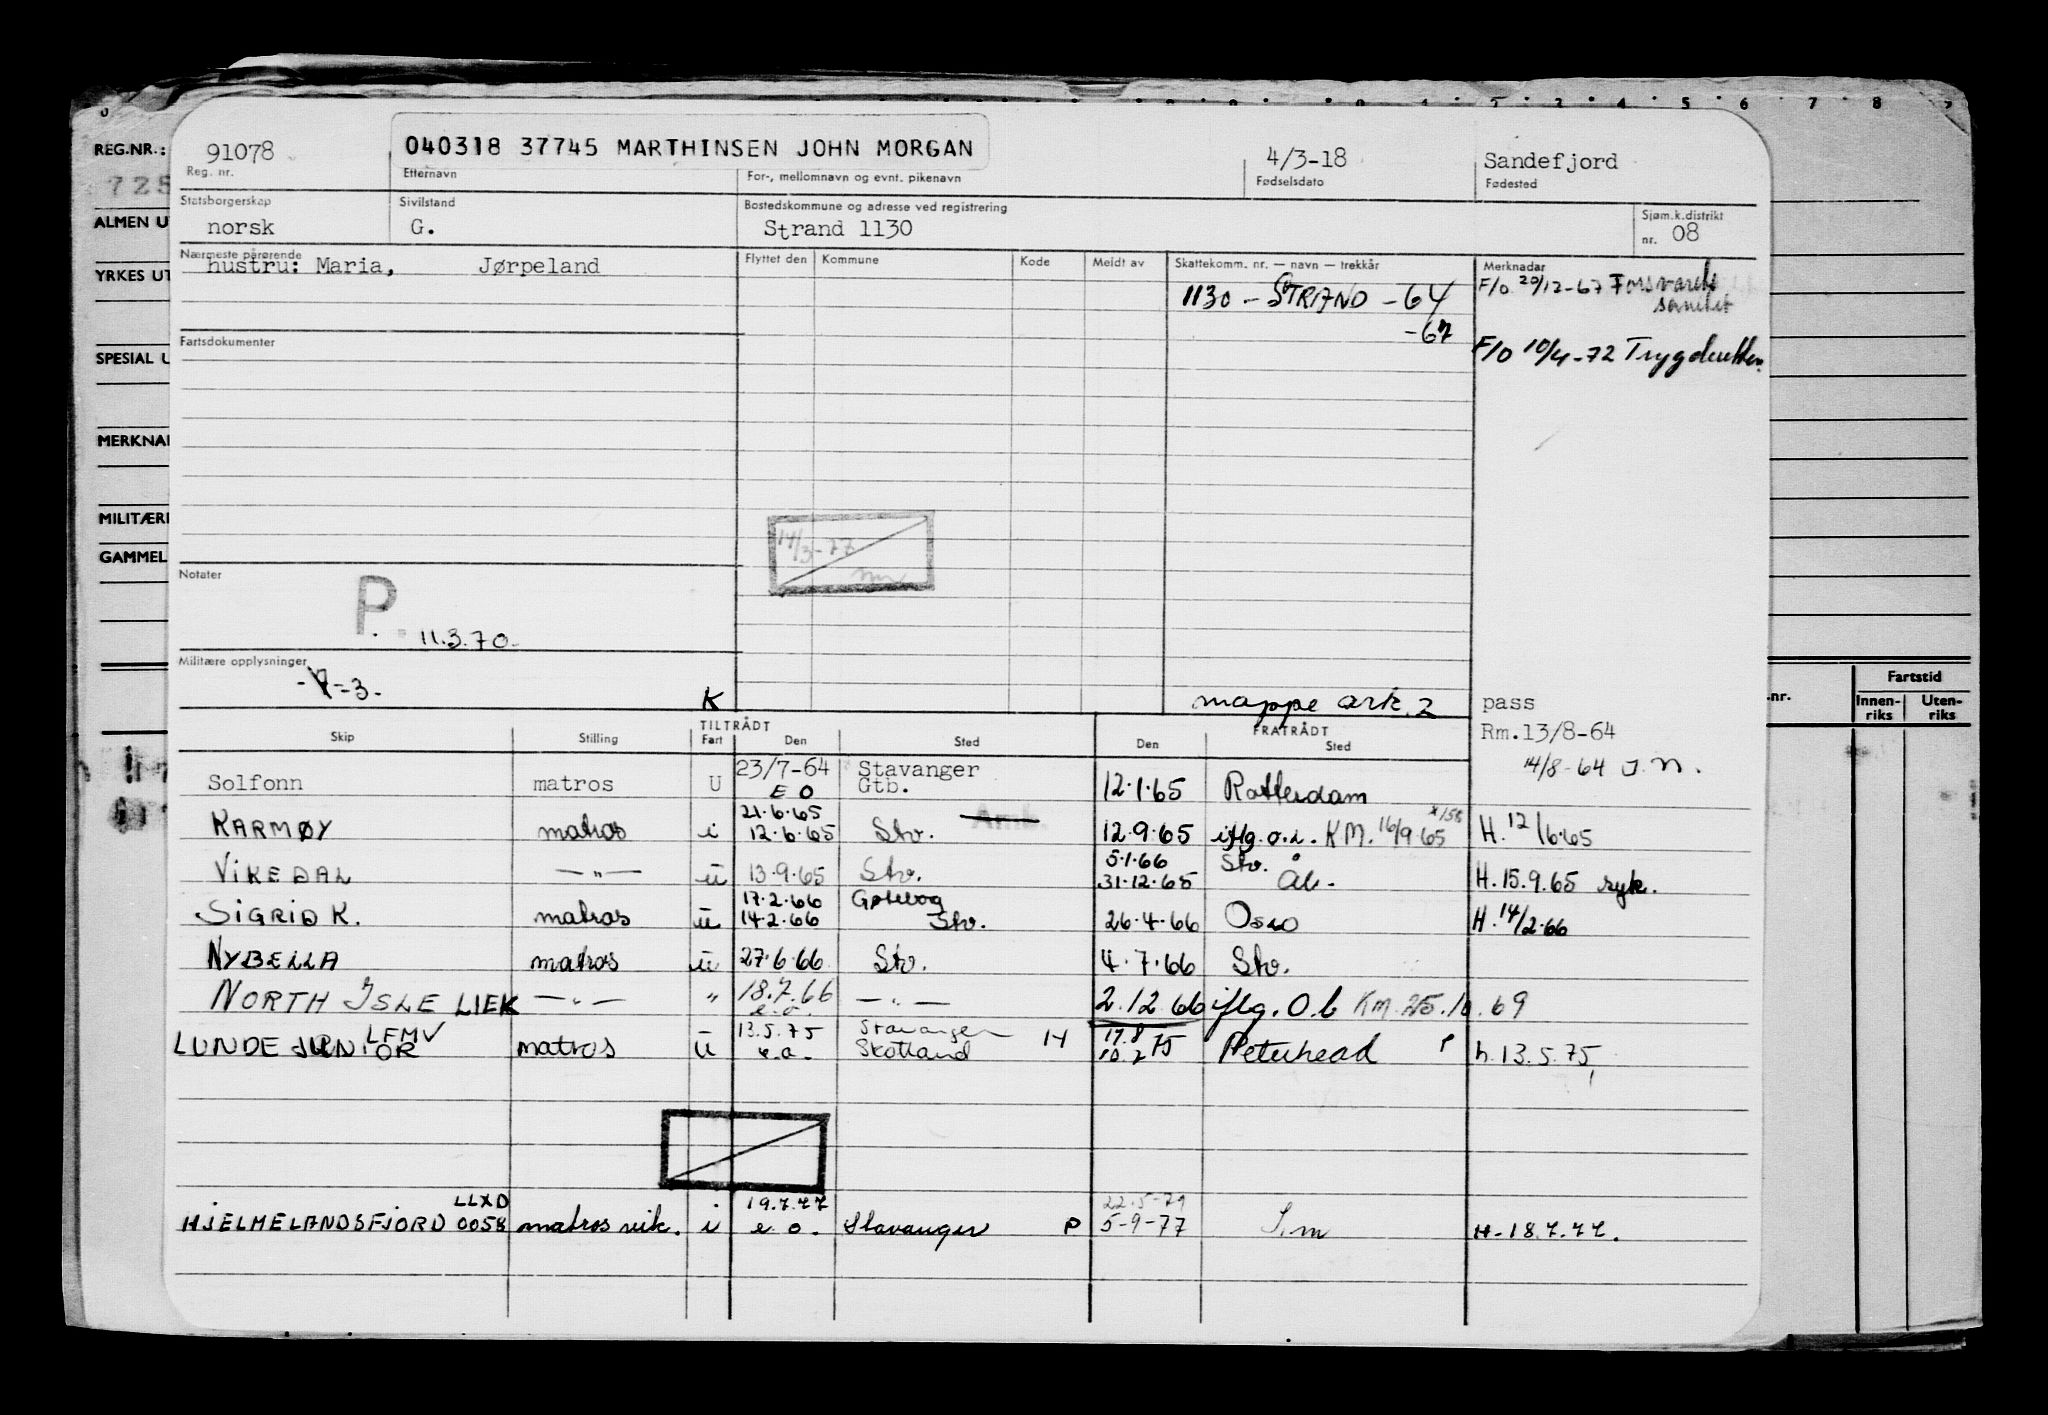 0 2 3 4 5 6 7 8
REG.NR.:
725
ALMEN U
YRKES UT
SPESIAL U
MERKNA
MILITÆR
GAMMEL
91078 040318 37745 MARTHINSEN JOHN MORGAN 4/3-18 Sandefjord
Reg. nr. Etternavn For-, mellomnavn og evnt. pikenavn Fødselsdato Fødested
Statsborgerskap Sivilstand Bostedskommune og adresse ved registrering Sjøm.k.distrikt
norsk G. Strand 1130 nr. 08
Nærmeste pårørende Flyttet den Kommune Kode Meldt av Skattekomm. nr. — navn — trekkår Merknadar
hustru: Maria, Jørpeland
1130 - STRAND - 64 F/O 20/12-67 Forsvarets
sanitet
-67
F/O 10/4-72 Trygdeetten.
Fartsdokumenter
14/3-77
Notater
P. 11.3.70.
Militære opplysninger
-3-
K mappe ark. 2 pass
TILTRÅDT FRATRÅDT Rm.13/8-64
Skip Stilling Fart Den Sted Den Sted
14/8-64 J.N.
Solfonn matros U 23/7-64 Stavanger
E O Gtb. 12.1.65 Rotterdam
21.6.65 Amb.
KARMØY matros i 12.6.65 Stv. 12.9.65 iflg. o.l. KM. 16/9 65 H. 12/6.65
5.1.66 Stv.
VIKEDAL —"— u 13.9.65 Stv. 31.12.65 Ål. H. 15.9.65 syk.
17.2.66 Gøteborg
SIGRID K. matros u 14.2.66 Stv. 26.4.66 Oslo H. 14/2.66
NYBELLA matros u 27.6.66 Stv. 4.7.66 Stv.
NORTH ISLE LIEK —"— " 18.7.66 —"— 2.12.66 iflg. O.b KM. 25.10.69
e.o.
LFMV 13.5.75 Stavanger 17.8
LUNDE JUNIOR matros u e.o. Skotland H 10.7 75 Peterhead P h.13.5.75,
LLXD 19.7.77 22.5-79
HJELMELANDSFJORD 0058 matros vik. i e.o. Stavanger P 5-9-77 S.m H-18.7.77.
.nr. Fartstid
Innen-riks Uten-riks